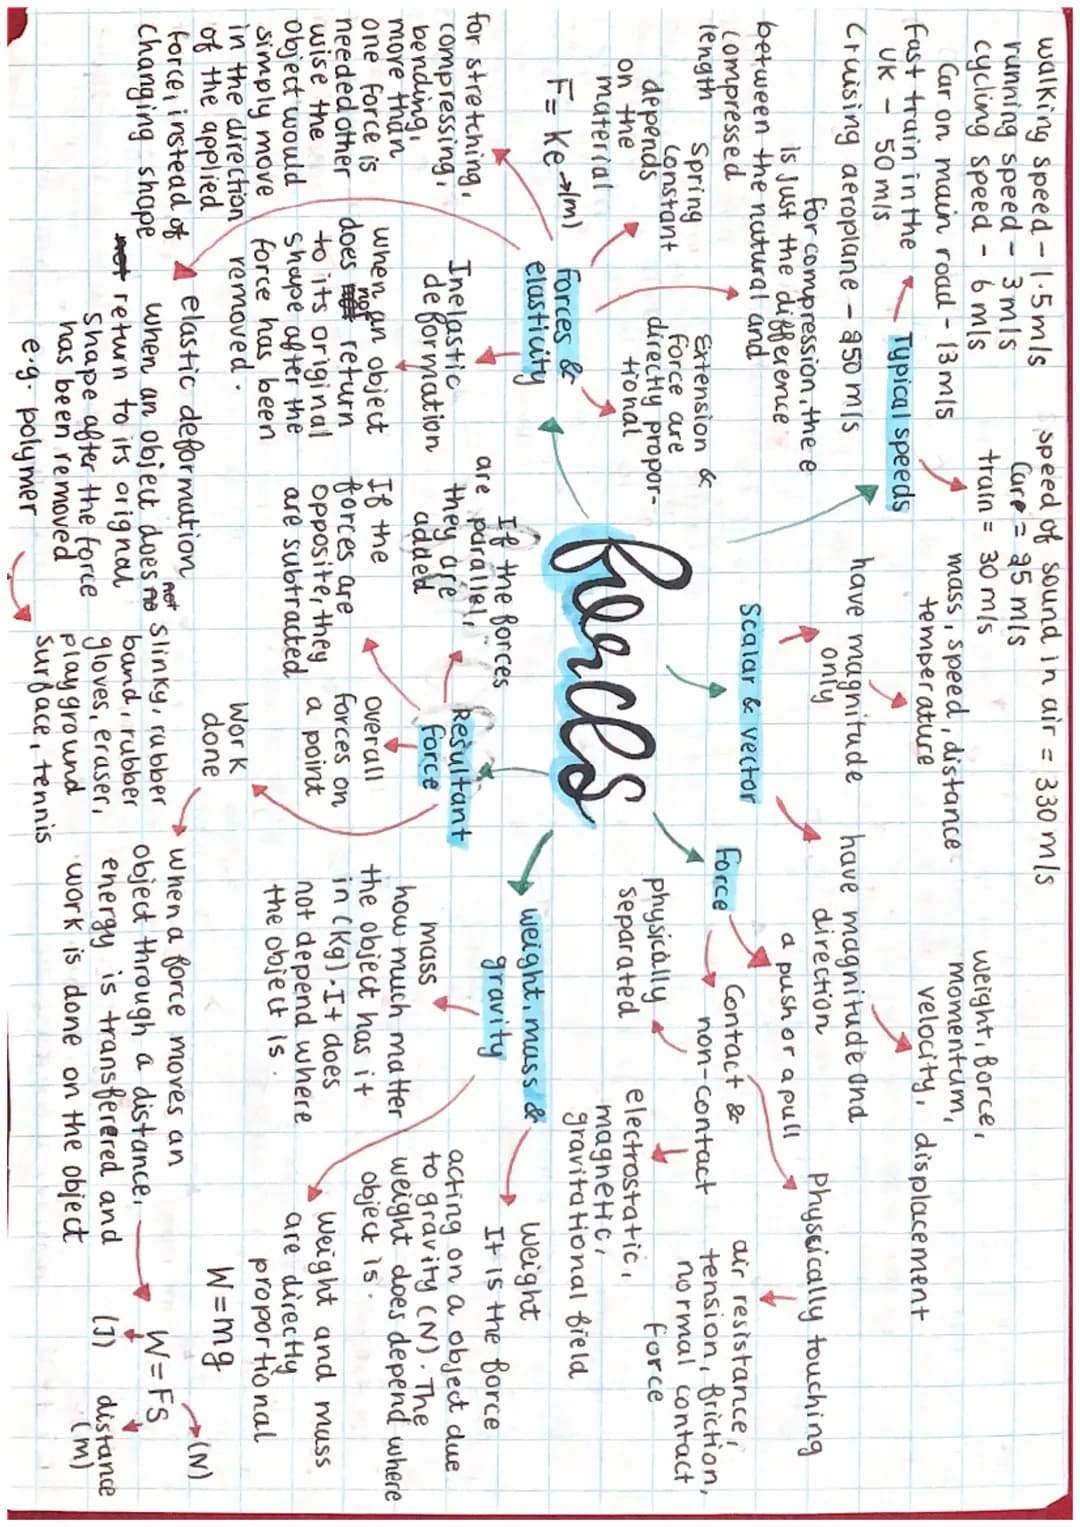 walking speed - 1.5m/s
running speed - 3m/s
cycling speed - 6m/s
Car on main road - 13m/s
Fast train in the
UK - 50m/s
Cruising aeroplane - 250m/s
Typical speeds
speed of sound in air = 330m/s
Care = 25m/s
train = 30m/s
for compression, the e
is just the difference
between the natural and
compressed
length
Spring
constant
depends
on the
material
F = Ke → (m)
Extension &
force are
directly propor-
tional
Forces &
elasticity
for stretching,
compressing,
bending,
more than
one force is
needed other
wise the
object would
simply move
in the direction
of the applied
force, instead of
changing shape
Inelastic
deformation
when an object
does not return
to its original
shape after the
force has been
removed.
elastic deformation
when an object does not
return to its orignal
shape after the force
has been removed
e.g. polymer
slinky, rubber
band, rubber
gloves, eraser,
playground
surface, tennis
Forces
Scalar & vector
have magnitude
only
mass, speed, distance
temperature
have magnitude and
direction
weight, force,
momentum,
velocity, displacement
Force
a push or a pull
Contact &
non-contact
Physically touching
air resistance,
tension, friction,
normal contact
force
physically
separated
electrostatic,
magnetic,
gravitational field
Resultant
force
If the forces
are parallel,
they are
added
If the
forces are
opposite, they
are subtracted
overall
forces on
a point
Work
done
when a force moves an
object through a distance,
energy is transferered and
work is done on the object
W = FS
(N)
(J)
distance
(m)
weight, mass &
gravity
mass
how much matter
the object has it
in (Kg). It does
not depend where
the object is.
Weight
It is the force
acting on a object due
to gravity (N). The
weight does depend where
object is.
Weight and mass
are directly
proportional
W = mg